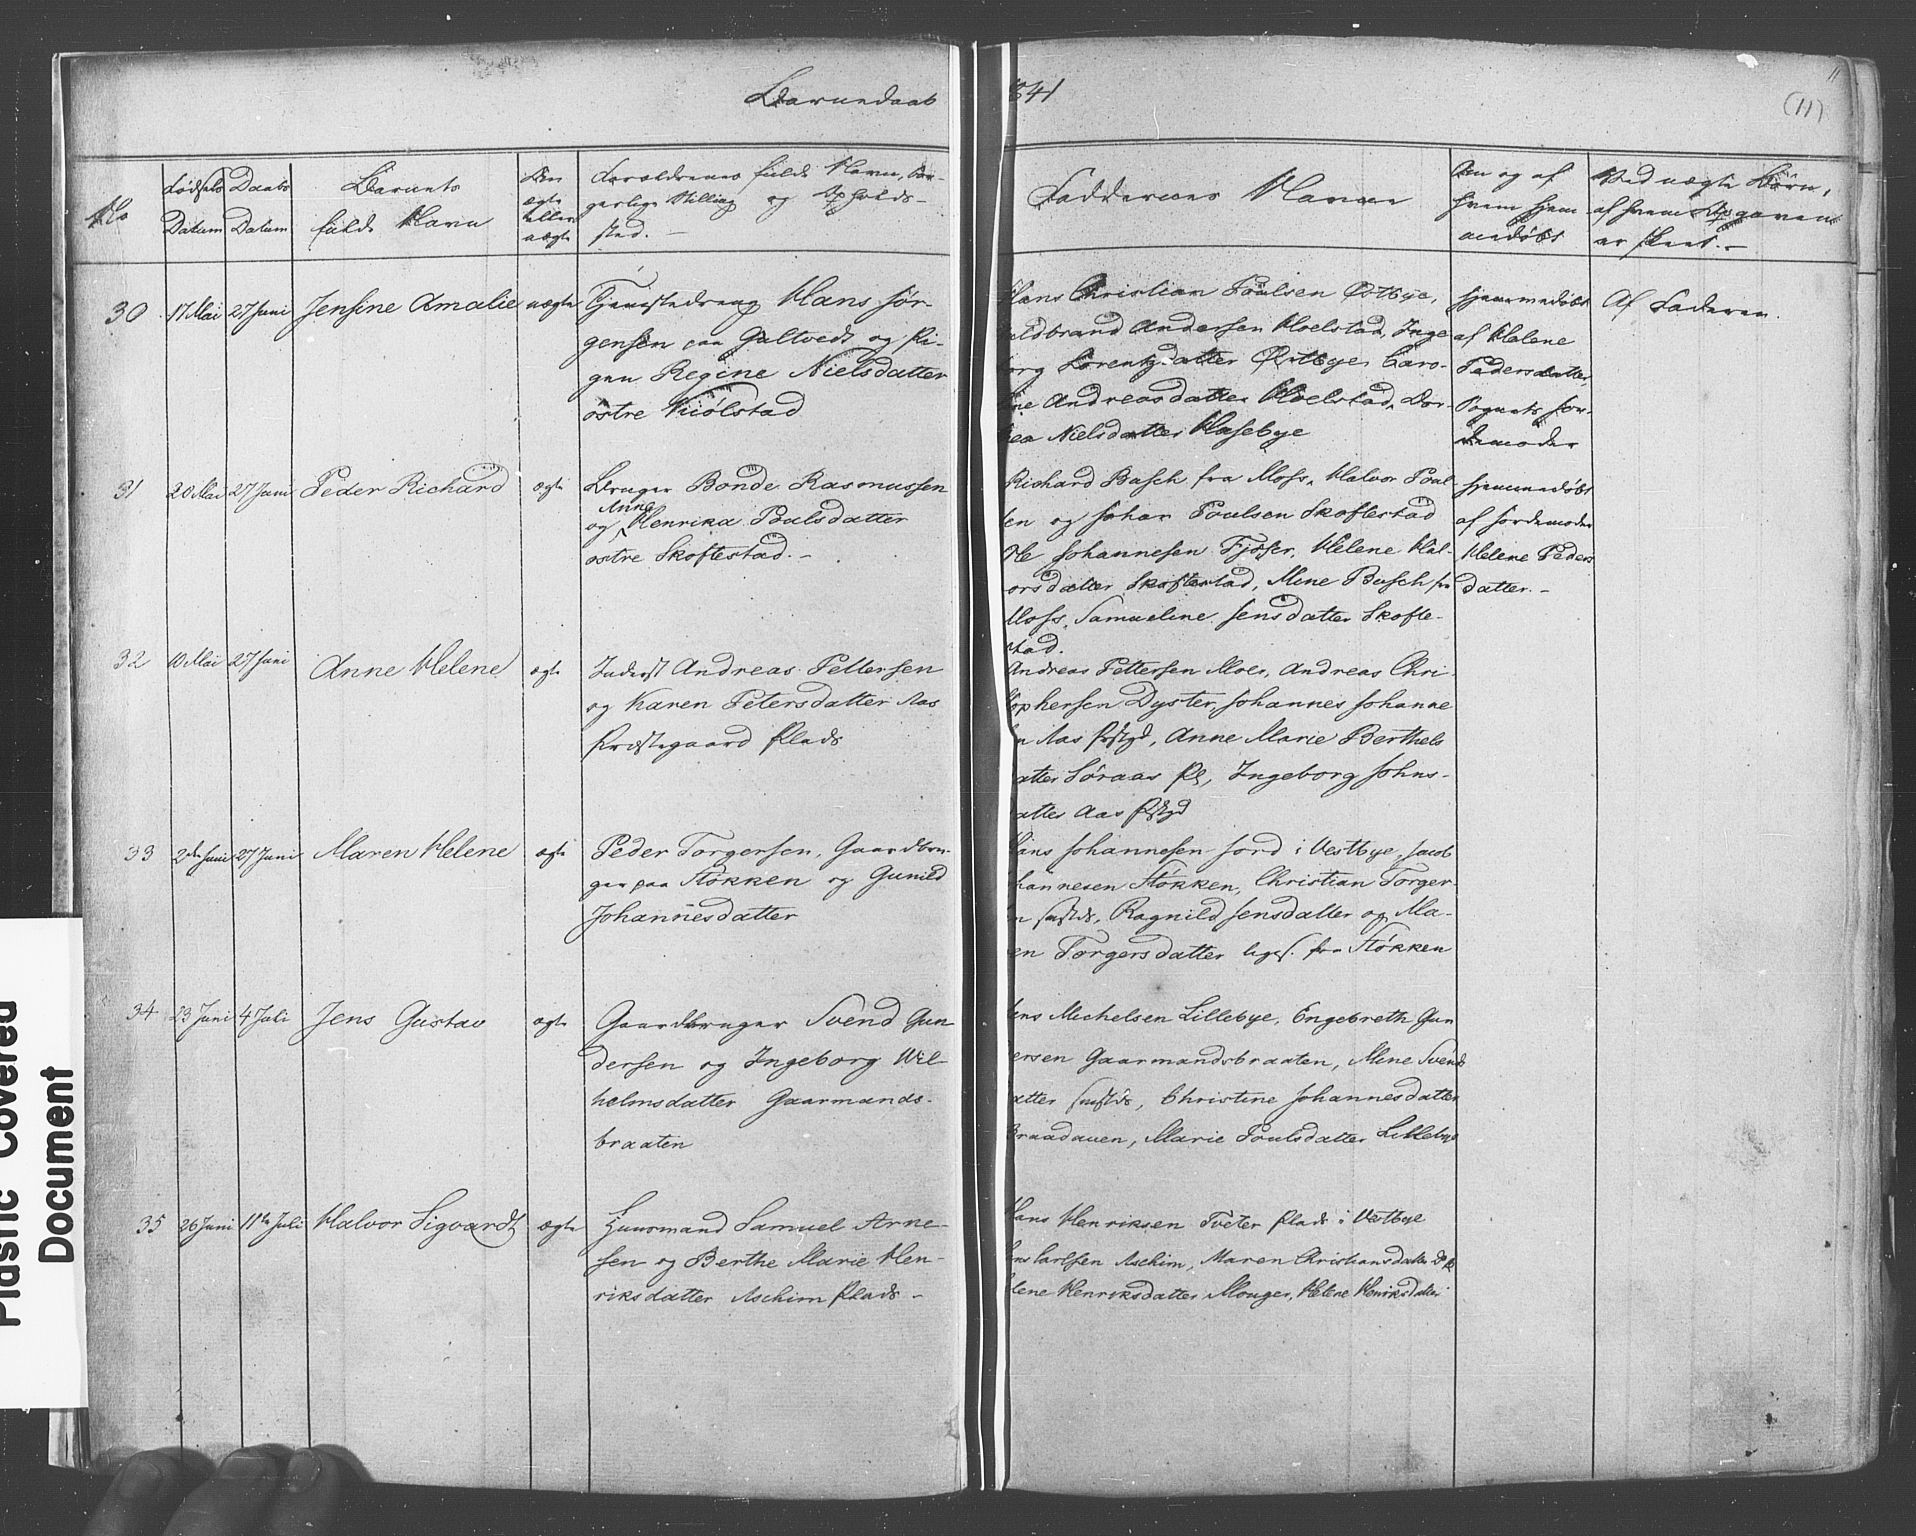 Barnedaab
841
11
(11)
No
Fødsels
Datum
Daabs
Datum
Barnets
fulde Navn
Om
ægte
eller
uægte
Forældrenes fulde Navn, Bor-
gerlige Stilling og Opholds-
sted. -
Faddernes Navne
Om og af
hvem hjem
medøbt
Ved uægte Börn,
af hvem Opgaven
er skeet. -
30 17 Mai 27 Juni Jensine Amalie uægte
Tjenestedreng Hans Jør-
gensen paa Galtvedt og Pi-
gen Regine Nielsdatter
østre Kiölstad
Hans Christian Poulsen Østbye,
Andersen Hoelstad, Inge
borg Lorentzdatter Østbye, Caro-
ine Andreasdatter Hoelstad, Dor-
hea Nielsdatter Huseby
hjemmedøbt
af Helene
Pedersdatter,
Sognets Jor-
demoder
Af Faderen.
31 20 Mai 27 Juni Peder Richard ægte
Bruger Bonde Rasmussen
Anne
og Henrika Poulsdatter
østre Skoftestad. -
Richard Basch fra Moss, Halvor Poul-
sen og Johan Poulsen Skoftestad
Ole Johannesen Fjøser, Helene Hal-
orsdatter Skoftestad, Mine Busch fra
Moss, Samueline Jensdatter Skofte-
stad.
hjemmedøbt
af Jordemoder
Helene Peders
datter. -
32 10 Mai 27 Juni Anne Helene ægte
Inderst Andreas Pettersen
og Karen Petersdatter Aas
Præstegaard Plads
Andreas Pettersen Moer, Andreas Chri-
stophersen Dyster, Johannes Johanne
n Aas Prstgd, Anne Marie Berthels
atter Søraas Pl, Ingeborg Johns-
atter Aas Prstgd
33 2den Juni 27 Juni Maren Helene ægte
Peder Torgersen, Gaardbru-
ger paa Støkken og Gunild
Johannesdatter
Hans Johannesen Jord i Vestbye, Jacob
hannesen Støkken, Christian Torger-
en sustds, Ragnild Jensdatter og Ma-
en Torgersdatter liges. fra Støkken
34 23 Juni 4 Juli Jens Gustav ægte
Gaardbruger Svend Gun
dersen og Ingeborg Wil-
helmsdatter Gaarmands-
braaten
ens Michelsen Lillebye, Engebreth Gun
ersen Gaarmandsbraaten, Mine Svends
atter sustds, Christine Johannesdatter
Braadaven, Marie Poulsdatter Lillebye
35 26 Juni 11te Juli Halvor Sigvardt ægte
Huusmand Samuel Arne-
sen og Berthe Marie Hen-
riksdatter Aschim Plads -
Hans Henriksen Tveter Plads i Vestbye
ns Carlsen Aschim, Maren Christiansdatter
lene Henriksdatter Monger, Helene Henriksdatter
Plastic Covered
Document